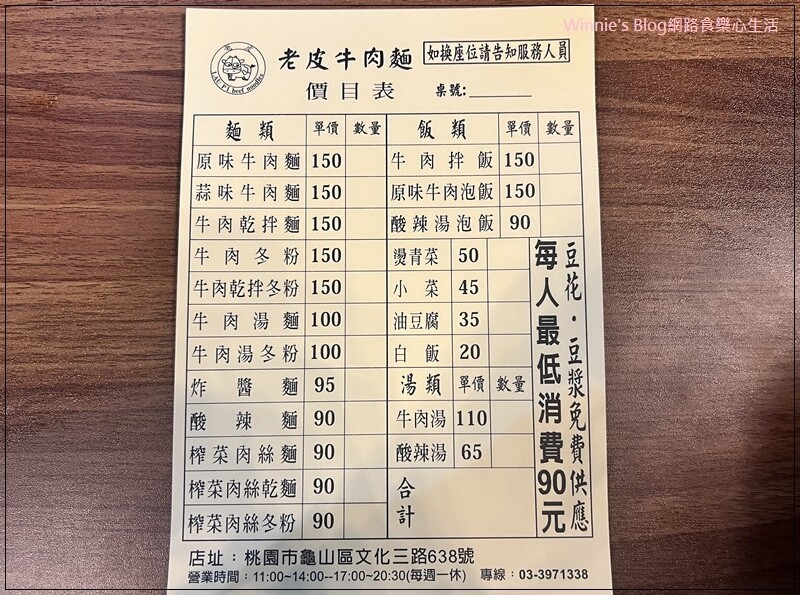 Winnie's Blog網路食樂心生活
老皮
LAU PI beef noodles
老皮牛肉麵
如換座位請告知服務人員
價目表 桌號:
麵類 單價 數量
原味牛肉麵 150
蒜味牛肉麵 150
牛肉乾拌麵 150
牛肉冬粉 150
牛肉乾拌冬粉 150
牛肉湯麵 100
牛肉湯冬粉 100
炸醬麵 95
酸辣麵 90
榨菜肉絲麵 90
榨菜肉絲乾麵 90
榨菜肉絲冬粉 90
飯類 單價 數量
牛肉拌飯 150
原味牛肉泡飯 150
酸辣湯泡飯 90
燙青菜 50
小菜 45
油豆腐 35
白飯 20
湯類 單價 數量
牛肉湯 110
酸辣湯 65
合計
豆花·豆漿免費供應
每人最低消費90元
店址：桃園市龜山區文化三路638號
營業時間：11:00~14:00--17:00~20:30(每週一休) 專線：03-3971338